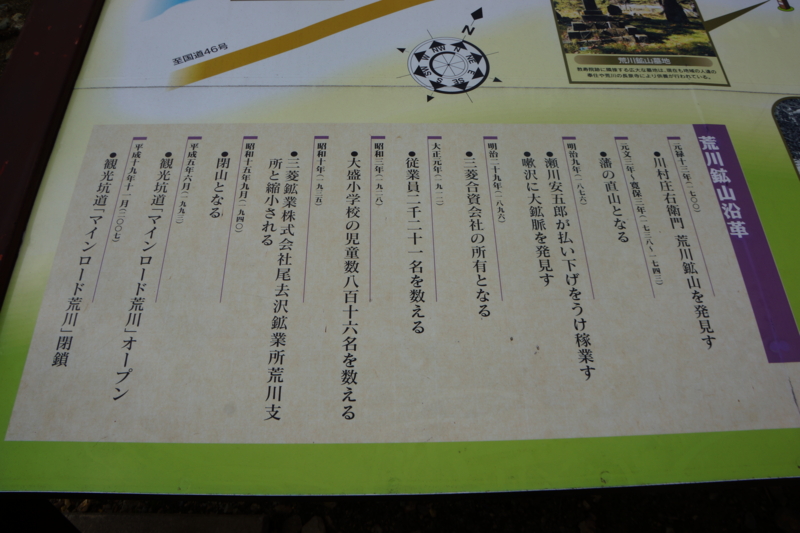 至国道46号
N
荒川鉱山墓地
荒川鉱山沿革
元禄十三年(一七〇〇)
●川村庄右衛門 荒川鉱山を発見す
元文三年〜寛保三年(一七三八〜一七四三)
●藩の直山となる
明治九年(一八七六)
●瀬川安五郎が払い下げをうけ稼業す
嗽沢に大鉱脈を発見す
明治二十九年(一八九六)
●三菱合資会社の所有となる
大正元年(一九一二)
●従業員二千二十一名を数える
昭和三年(一九二八)
●大盛小学校の児童数八百十六名を数える
昭和十年(一九三五)
●三菱鉱業株式会社尾去沢鉱業所荒川支
所と縮小される
昭和十五年九月(一九四〇)
●閉山となる
平成五年六月(一九九三)
●観光坑道「マインロード荒川」オープン
平成十九年十一月(二〇〇七)
●観光坑道「マインロード荒川」閉鎖